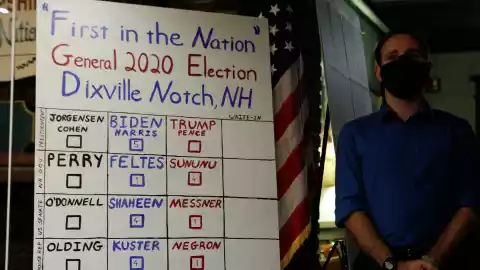 "First in the Nation"
General 2020 Election
Dixville Notch, NH
WRITE-IN
JORGENSEN BIDEN TRUMP
COHEN HARRIS PENCE
5
PERRY FELTES SUNUNU
O'DONNELL SHAHEEN MESSNER
4 1
OLDING KUSTER NEGRON
4 1